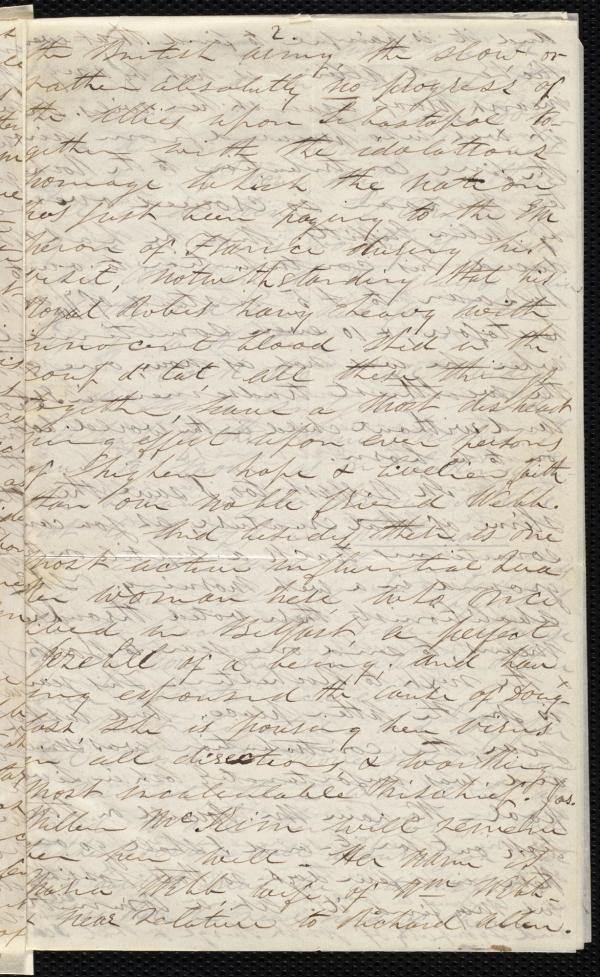 2.
the British army, the slow or
rather absolutely no progress of
the Allies upon Sebastopol to-
gether with the idolatrous
homage which the nation
has just been paying to the Em
peror of France during his
visit, notwithstanding that his
Royal Robes hang heavy with
innocent blood shed in the
coup d'tat all these things
together, have a most disheart
ning effect upon even persons
of higher hope & livelier faith
than our noble friend Webb.
And besides there is one
most active influential Qua
ker woman here who once
lived in Belfast, a perfect
Jezebel of a being, and hav
ing espoused the cause of Doug-
lass She is pousing her virus
in all directions & working
most incalculable mischief. Jas.
Miller McKim will remem
ber her well - Her name is
Maria Webb, wife of Wm Webb -
near relative to Richard Allen.